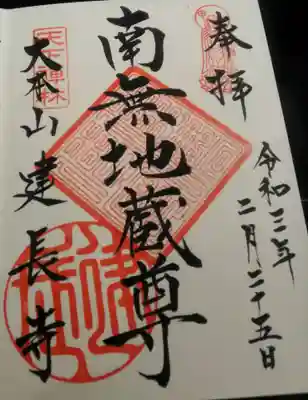 奉拝
令和三年
二月二十五日
南無地蔵尊
大本山建長寺
天下禅林